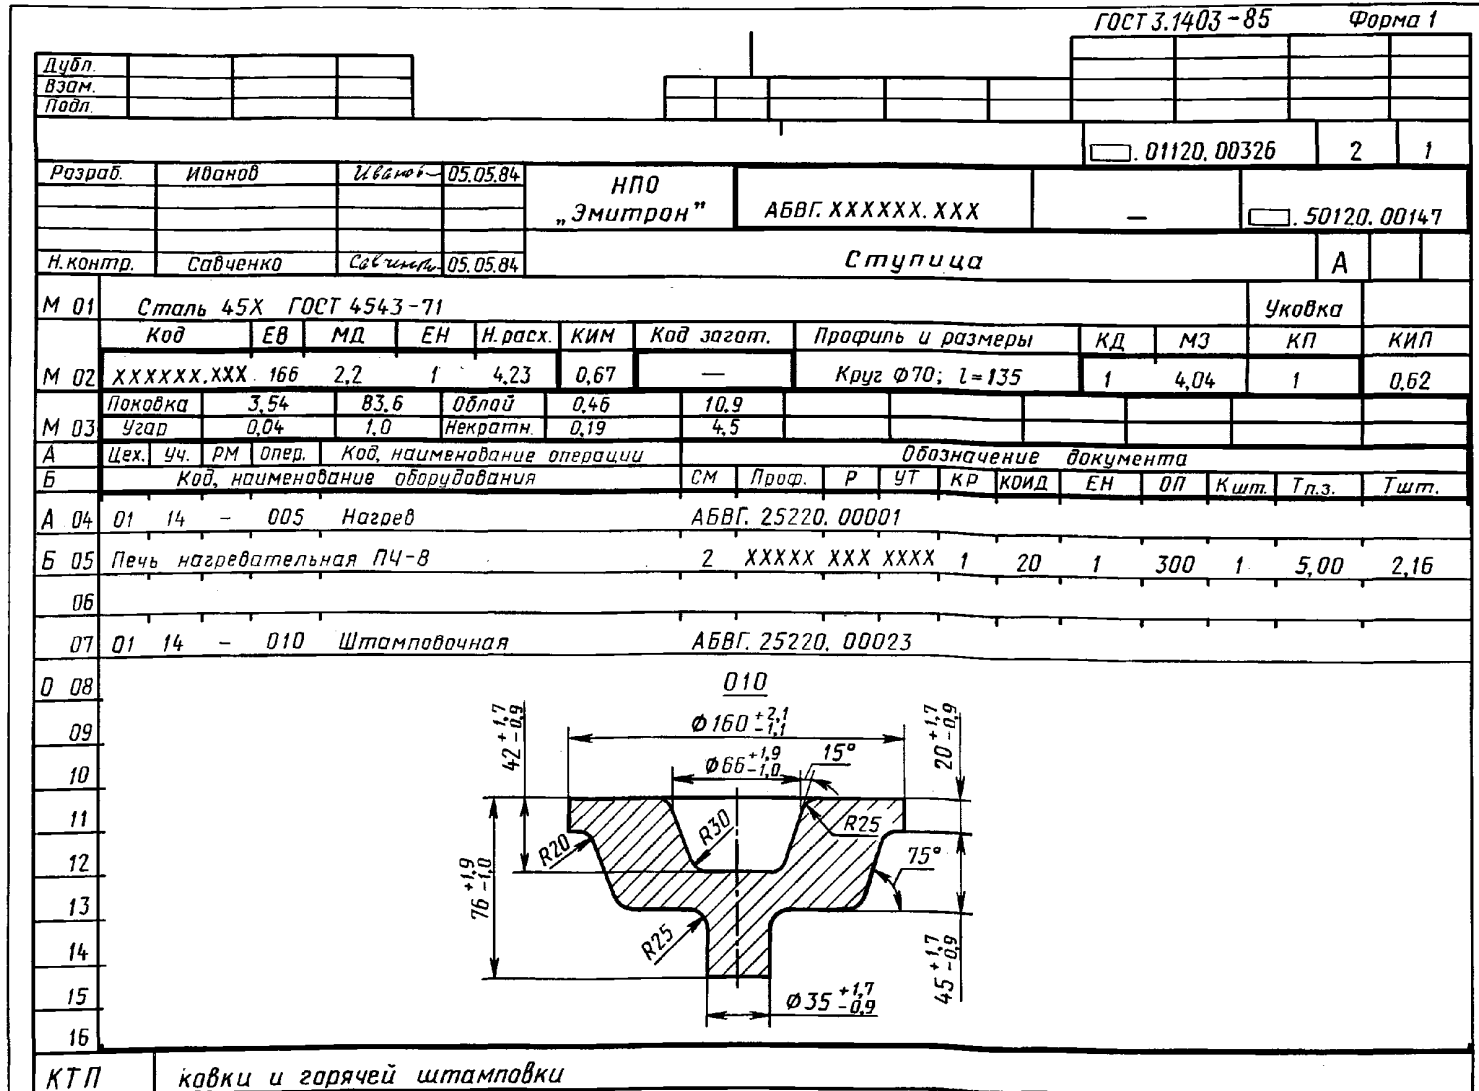 ГОСТ 3.1403-85 Форма 1
Дубл.
Взам.
Подл.
. 01120. 00326 2 1
Разраб. Иванов Иванов 05.05.84 НПО „Эмитрон" АБВГ. XXXXXX. XXX — . 50120. 00147
Н. контр. Савченко Савченко 05.05.84 Ступица А
М 01 Сталь 45Х ГОСТ 4543-71 Уковка
Код ЕВ МД ЕН Н. расх. КИМ Код загот. Профиль и размеры КД МЗ КП КИП
М 02 XXXXXX.XXX 166 2,2 1 4,23 0,67 — Круг Ф70; l=135 1 4,04 1 0,62
Поковка 3,54 83,6 Облой 0,46 10,9
М 03 Угар 0,04 1,0 Некратн. 0,19 4,5
А Цех. Уч. РМ Опер. Код, наименование операции Обозначение документа
Б Код, наименование оборудования СМ Проф. Р УТ КР КОИД ЕН ОП К шт. Тп.з. Тшт.
А 04 01 14 – 005 Нагрев АБВГ. 25220. 00001
Б 05 Печь нагревательная ПЧ-8 2 XXXXX XXX XXXX 1 20 1 300 1 5,00 2,16
06
07 01 14 – 010 Штамповочная АБВГ. 25220. 00023
О 08 010
09 42 +1,7 -0,9 Ф160 +2,1 -1,1 20 +1,7 -0,9
10 Ф66 +1,9 -1,0 15°
11 R30 R25
12 R20 75°
13 76 +1,9 -1,0
14 R25
15 Ф35 +1,7 -0,9 45 +1,7 -0,9
16
КТП ковки и горячей штамповки